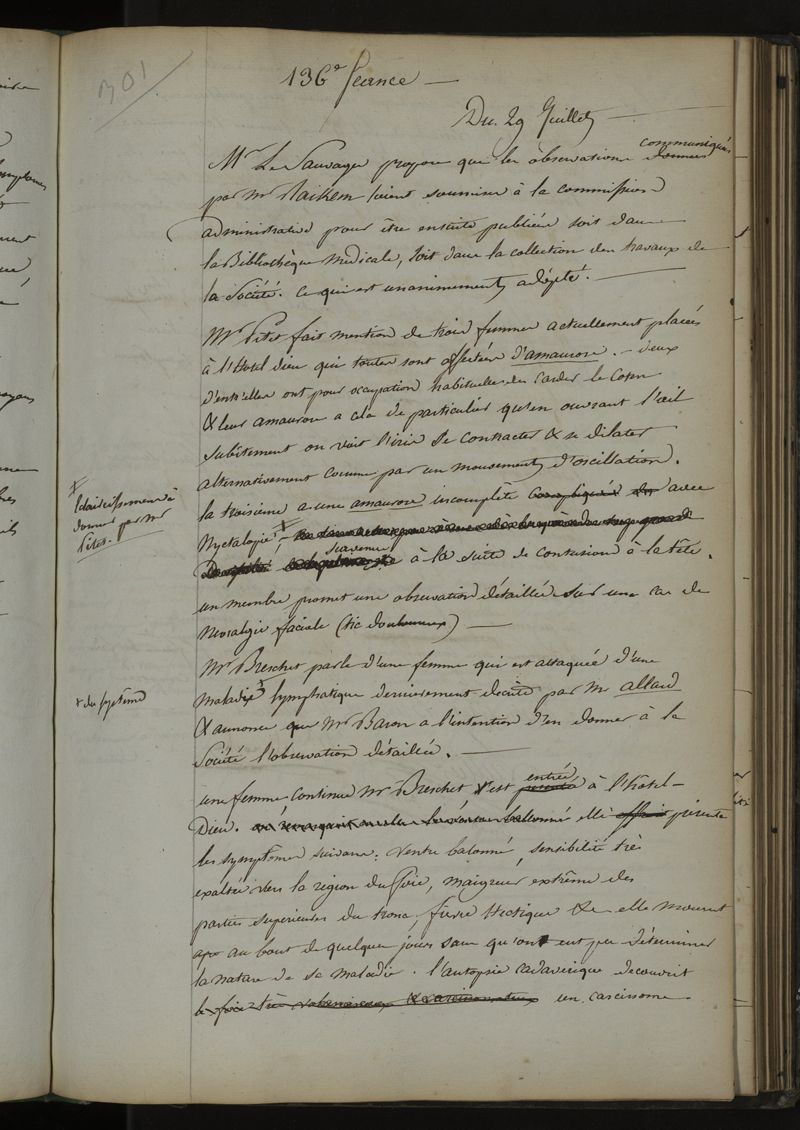 301
136e Séance —
Du 29 Juillet —
communiqués
Mr Le Sauvage propose que les observations données
par Mr Raikem soient soumises à la commission
administrative pour être ensuite publiées soit dans
la Bibliothèque médicale, soit dans la collection des travaux de
la Société. Ce qui est unanimement adopté. —
Mr Petit fait mention de trois femmes actuellement placées
à l'hotel dieu qui toutes sont affectées d'amaurose. — deux
d'entr'elles ont pour occupation habituelle de carder le coton
& leur amaurose a cela de particulier qu'en ouvrant l'œil
subitement on voit l'iris se contracter & se dilater
alternativement comme par un mouvement d'oscillation.
la troisième a une amaurose incomplète compliquée avec
Nyctalopie
survenue
à la suite de contusions à la tête.
Eclaircissemens à
donner par Mr
Petit.
un membre promet une observation détaillée sur un cas de
Nevralgie faciale (tic douloureux) —
Mr Breschet parle d'une femme qui est attaquée d'une
maladie + lymphatique dernierement décrite par Mr allard
+ du système
& annonce que Mr Baron a l'intention d'en donner à la
Société l'observation détaillée. —
une femme continue Mr Breschet s'est présentée à l'hotel-
entrée
Dieu. elle offrait présente
les symptômes suivans : ventre balonné, sensibilité très
exaltée vers la région du foie, maigreur extrême des
parties superieures du tronc, fievre hectique &c elle mourut
au bout de quelques jours sans qu'on eut pu déterminer
la nature de sa maladie. l'autopsie cadaverique decouvrit
le foie très & carcinomateux un carcinome